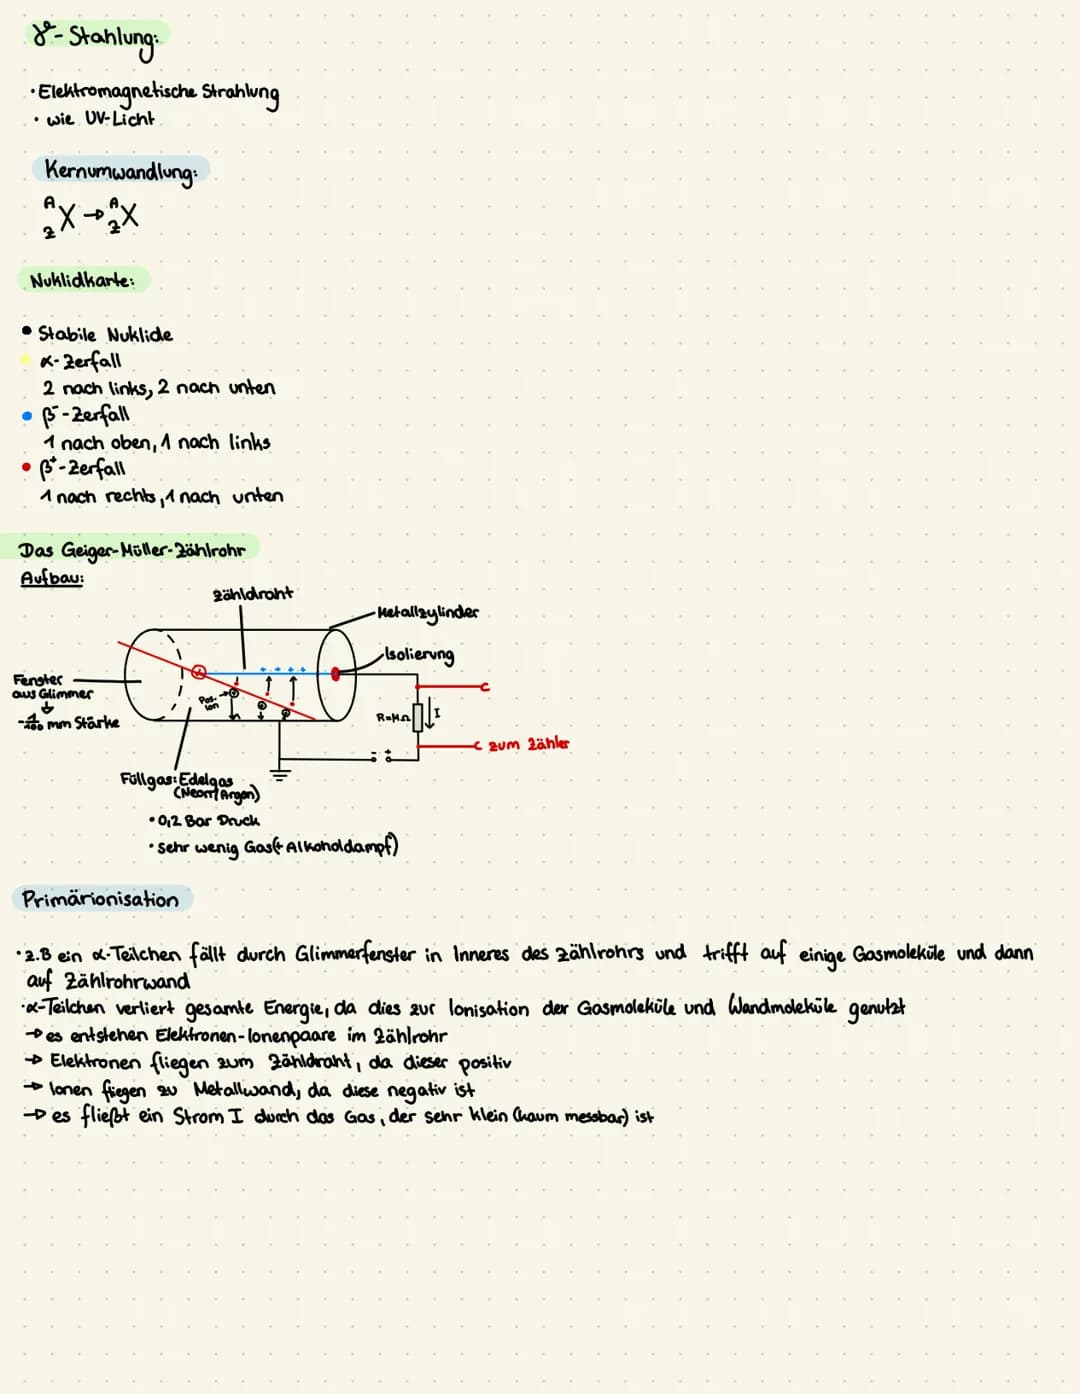 γ-Stahlung:
· Elektromagnetische Strahlung
· wie UV-Licht
Kernumwandlung:
A Z X → A Z X
Nuklidkarte:
• Stabile Nuklide
• α-Zerfall
2 nach links, 2 nach unten
• β⁻-Zerfall
1 nach oben, 1 nach links
• β⁺-Zerfall
1 nach rechts, 1 nach unten
Das Geiger-Müller-Zählrohr
Aufbau:
Zähldraht
Metallzylinder
Isolierung
Fenster
aus Glimmer
↓
~1/100 mm Stärke
Pos.
Ion
R=MΩ
I
zum Zähler
- +
Füllgas: Edelgas
(Neon/Argon)
• 0,2 Bar Druck
• sehr wenig Gas(+ Alkoholdampf)
Primärionisation
· z.B ein α-Teilchen fällt durch Glimmerfenster in Inneres des Zählrohrs und trifft auf einige Gasmoleküle und dann
auf Zählrohrwand
· α-Teilchen verliert gesamte Energie, da dies zur Ionisation der Gasmoleküle und Wandmoleküle genutzt
→ es entstehen Elektronen-Ionenpaare im Zählrohr
→ Elektronen fliegen zum Zähldraht, da dieser positiv
→ Ionen fliegen zu Metallwand, da diese negativ ist
→ es fließt ein Strom I durch das Gas, der sehr klein (kaum messbar) ist